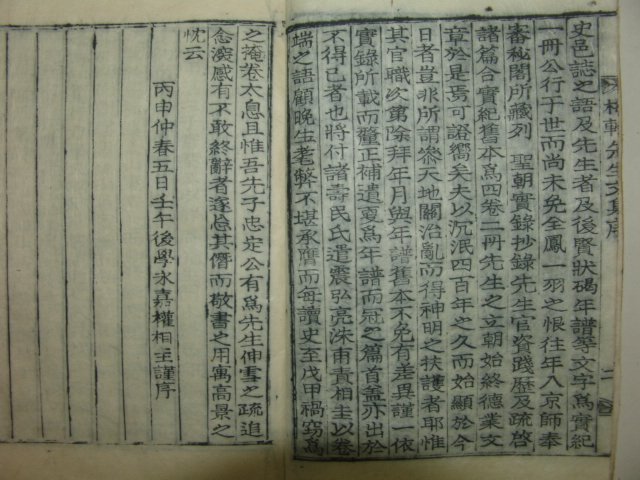 梅軒先生文集序
二
史邑誌之語及先生者及後賢狀碣年譜等文字爲實紀
一冊公行于世而尚未免全鳳一羽之恨往年入京師奉
審秘閣所藏列 聖朝實錄抄錄先生官資踐歷及疏啓
諸篇合實紀舊本爲四卷二冊先生之立朝始終德業文
章於是焉可證嚮矣夫以沉泯四百年之久而始顯於今
日者豈非所謂叅天地關治亂而得神明之扶護者耶惟
其官職次第除拜年月與年譜舊本不免有差異謹一依
實錄所載而釐正補遺更爲年譜而冠之篇首盖亦出於
不得已者也將付諸壽民氏遣震弘亮洙甫責相圭以卷
端之語顧晩生老弊不堪承膺而每讀史至戊甲禍窃爲
之掩卷太息且惟吾先子忠定公有爲先生伸雪之疏追
念激感有不敢終辭者遂忘其僭而敬書之用寓高景之
忱云
丙申仲春五日壬午後學永嘉權相圭謹序